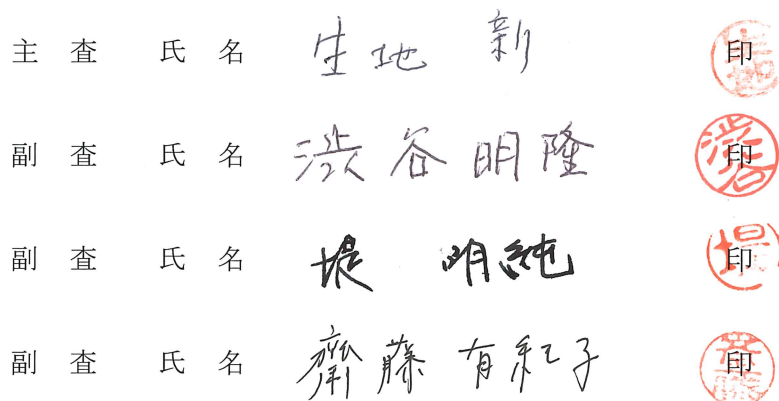 主 査 氏 名 生地 新 印
副 査 氏 名 渋谷 明隆 印
副 査 氏 名 堤 明純 印
副 査 氏 名 齋藤 有紀子 印